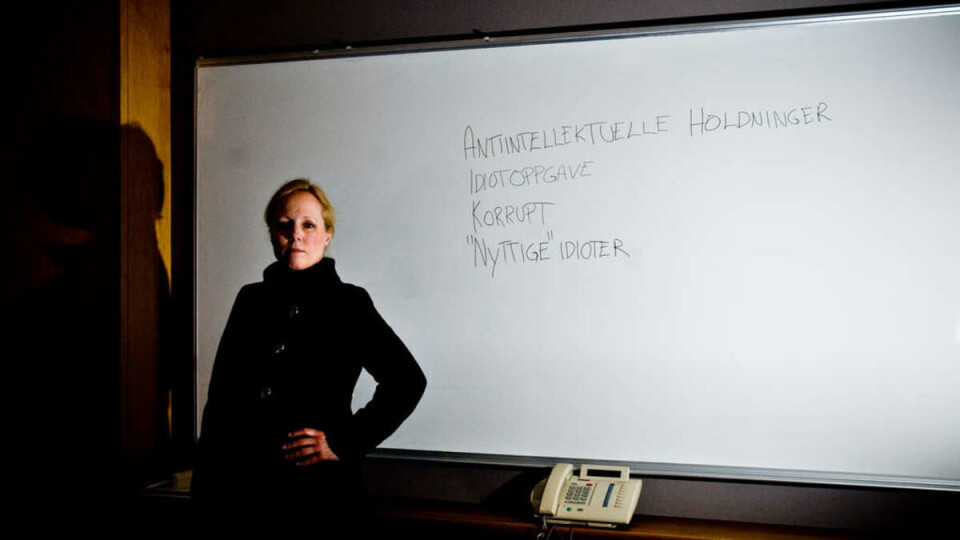 ANTIINTELLEKTUELLE HOLDNINGER
IDIOTOPPGAVE
KORRUPT
"NYTTIGE" IDIOTER